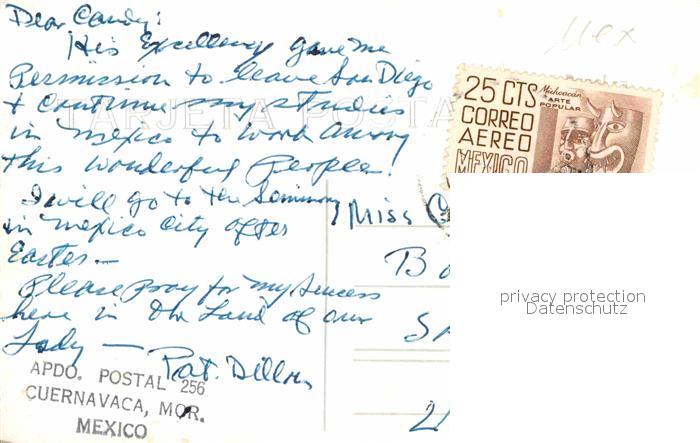 Dear Candy:
His Excellency gave me
Permission to leave San Diego
+ continue my studies
in Mexico to work among
this wonderful People!
I will go to the Seminary
in Mexico City after
Easter —
Please pray for my success
here in the Land of our
Lady —
Pat. Dillon
APDO. POSTAL 256
CUERNAVACA, MOR.
MEXICO
TARJETA POSTA
Mex
25 CTS
Michoacán
ARTE
POPULAR
CORREO
AEREO
MEXICO
Miss C
B
SA
privacy protection
Datenschutz